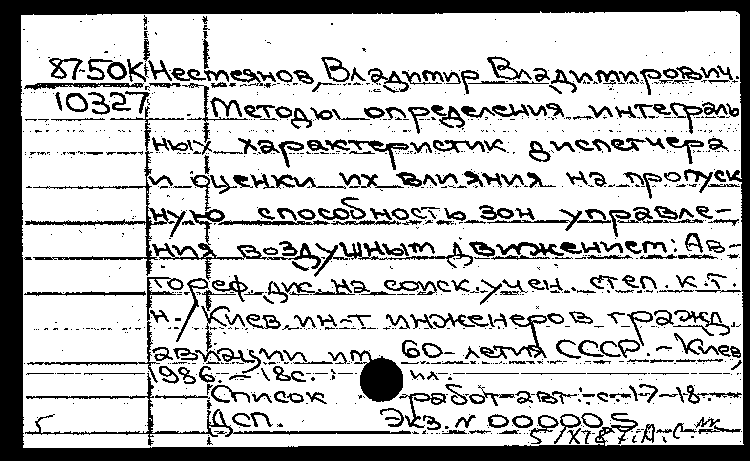 87-50К Нестеянов, Владимир Владимирович.
10327 Методы определения интеграль
ных характеристик диспетчера
и оценки их влияния на пропуск
ную способность зон управле-
ния воздушным движением: Ав-
тореф. дис. на соиск. учен. степ. к.т.
н. / Киев. ин-т инженеров гражд.
авиации им. 60-летия СССР. – Киев,
1986. – 18с. : ил.
Список работ авт.: с. 17-18.
ДСП. Экз. N 000005